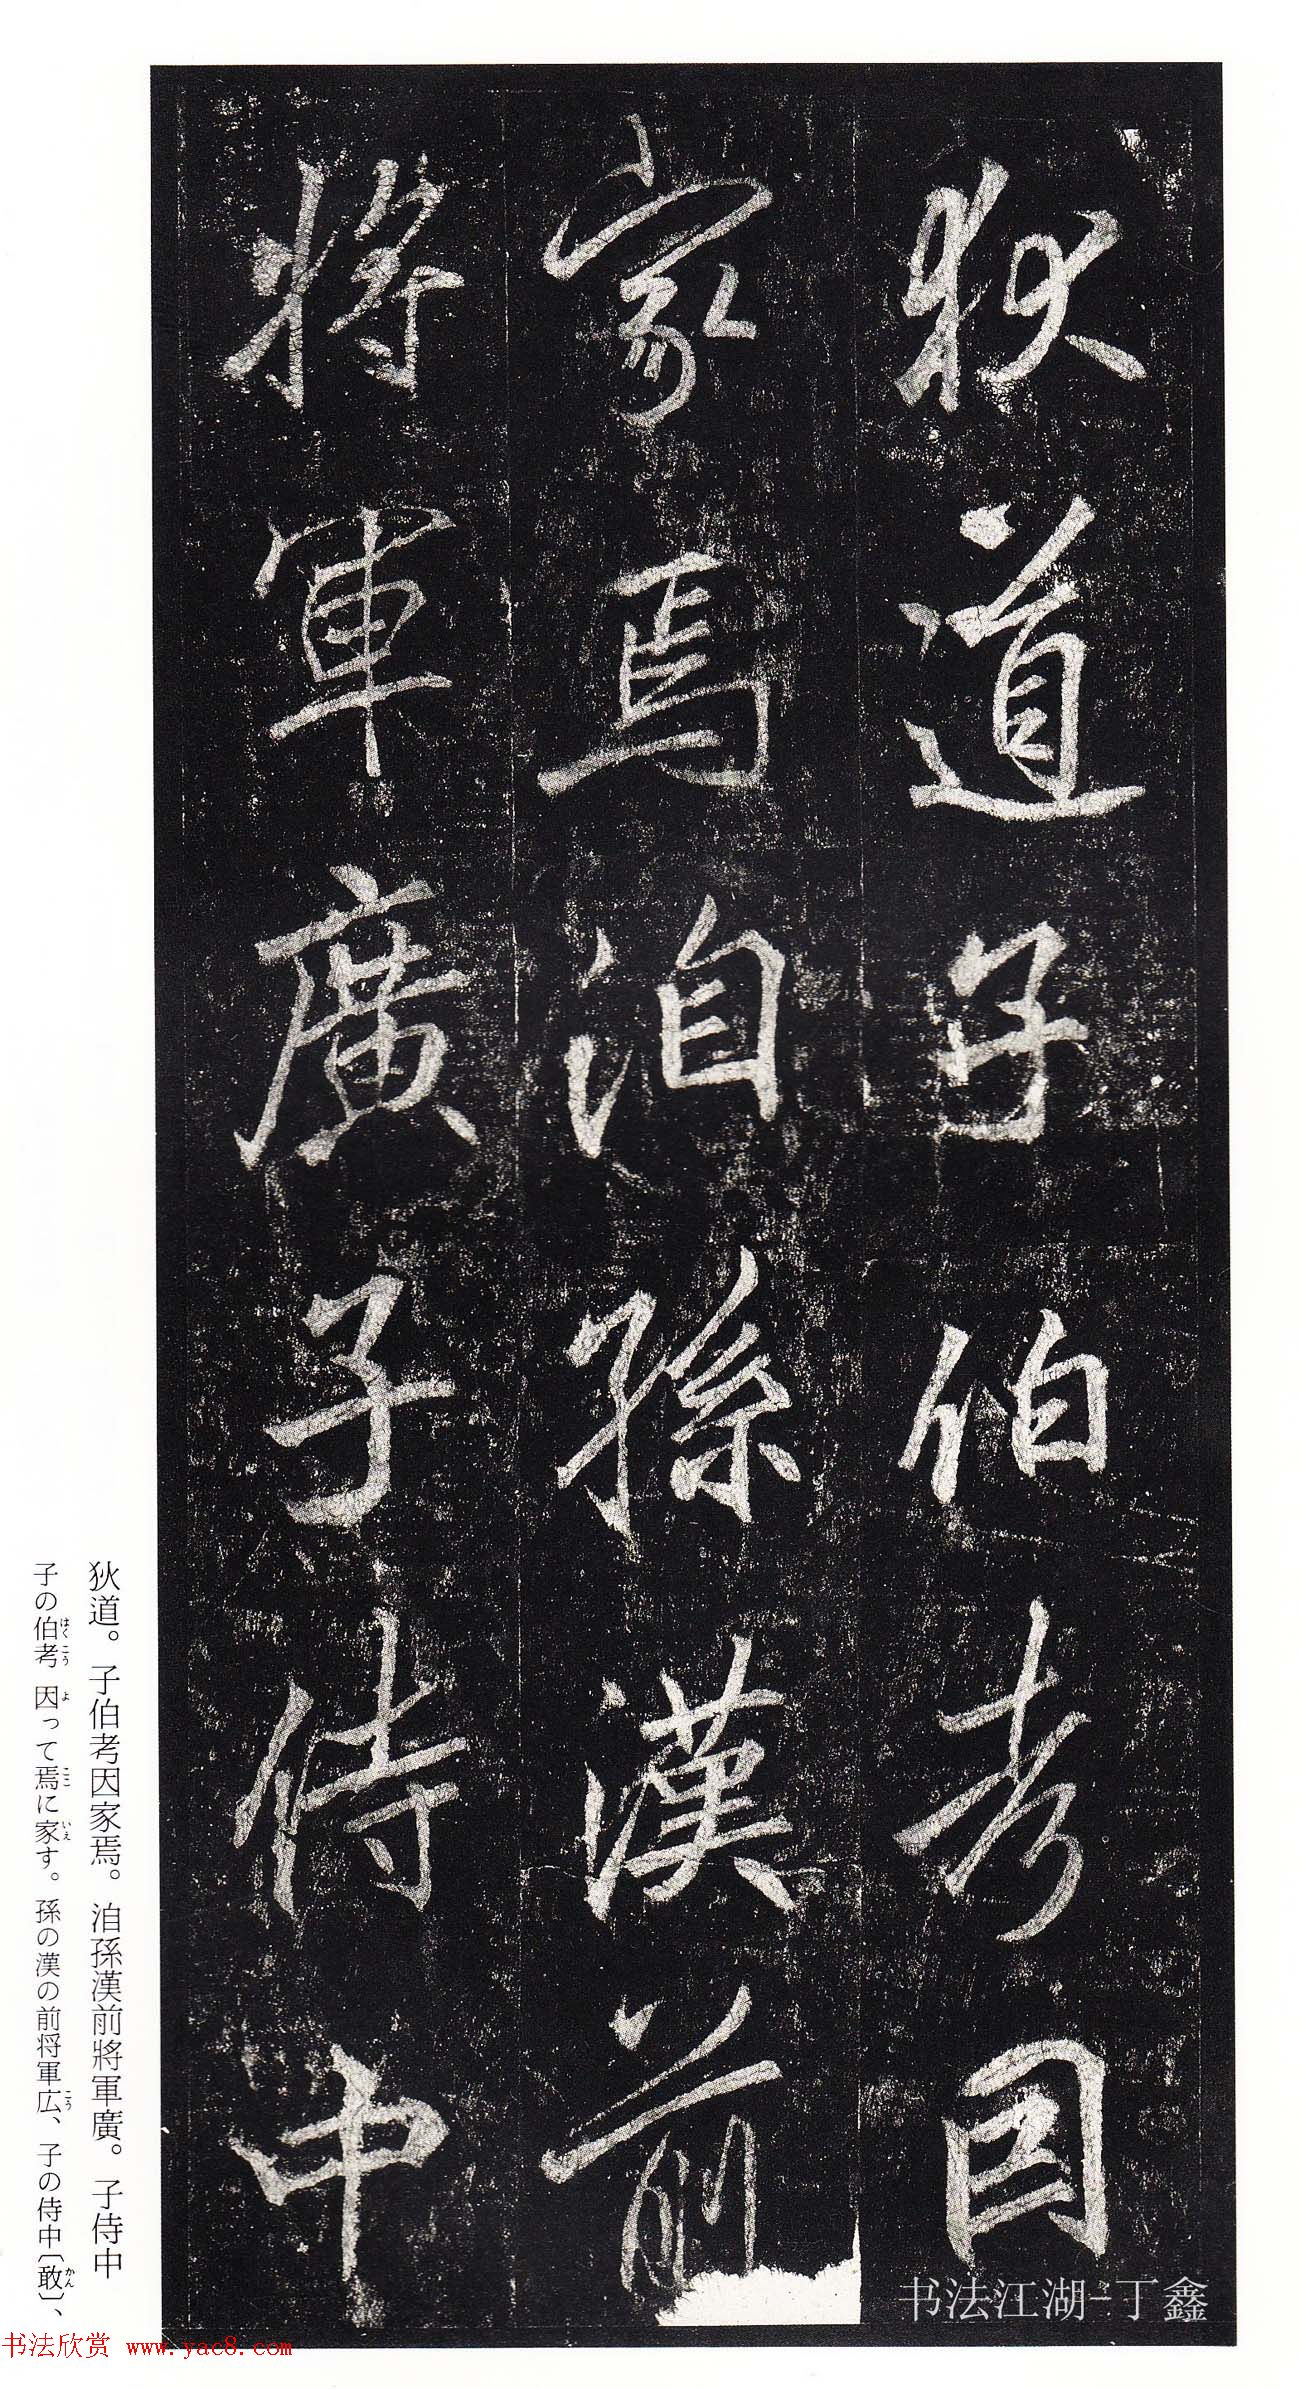 狄道子伯考因
家焉洎孫漢前
將軍廣子侍中
狄道。子伯考因家焉。洎孫漢前將軍廣。子侍中
子の伯考因って焉に家す。孫の漢の前将軍広、子の侍中〔敢〕、
はくこう よ ここ いえ こう かん
书法江湖-丁鑫
书法欣赏 www.yac8.com